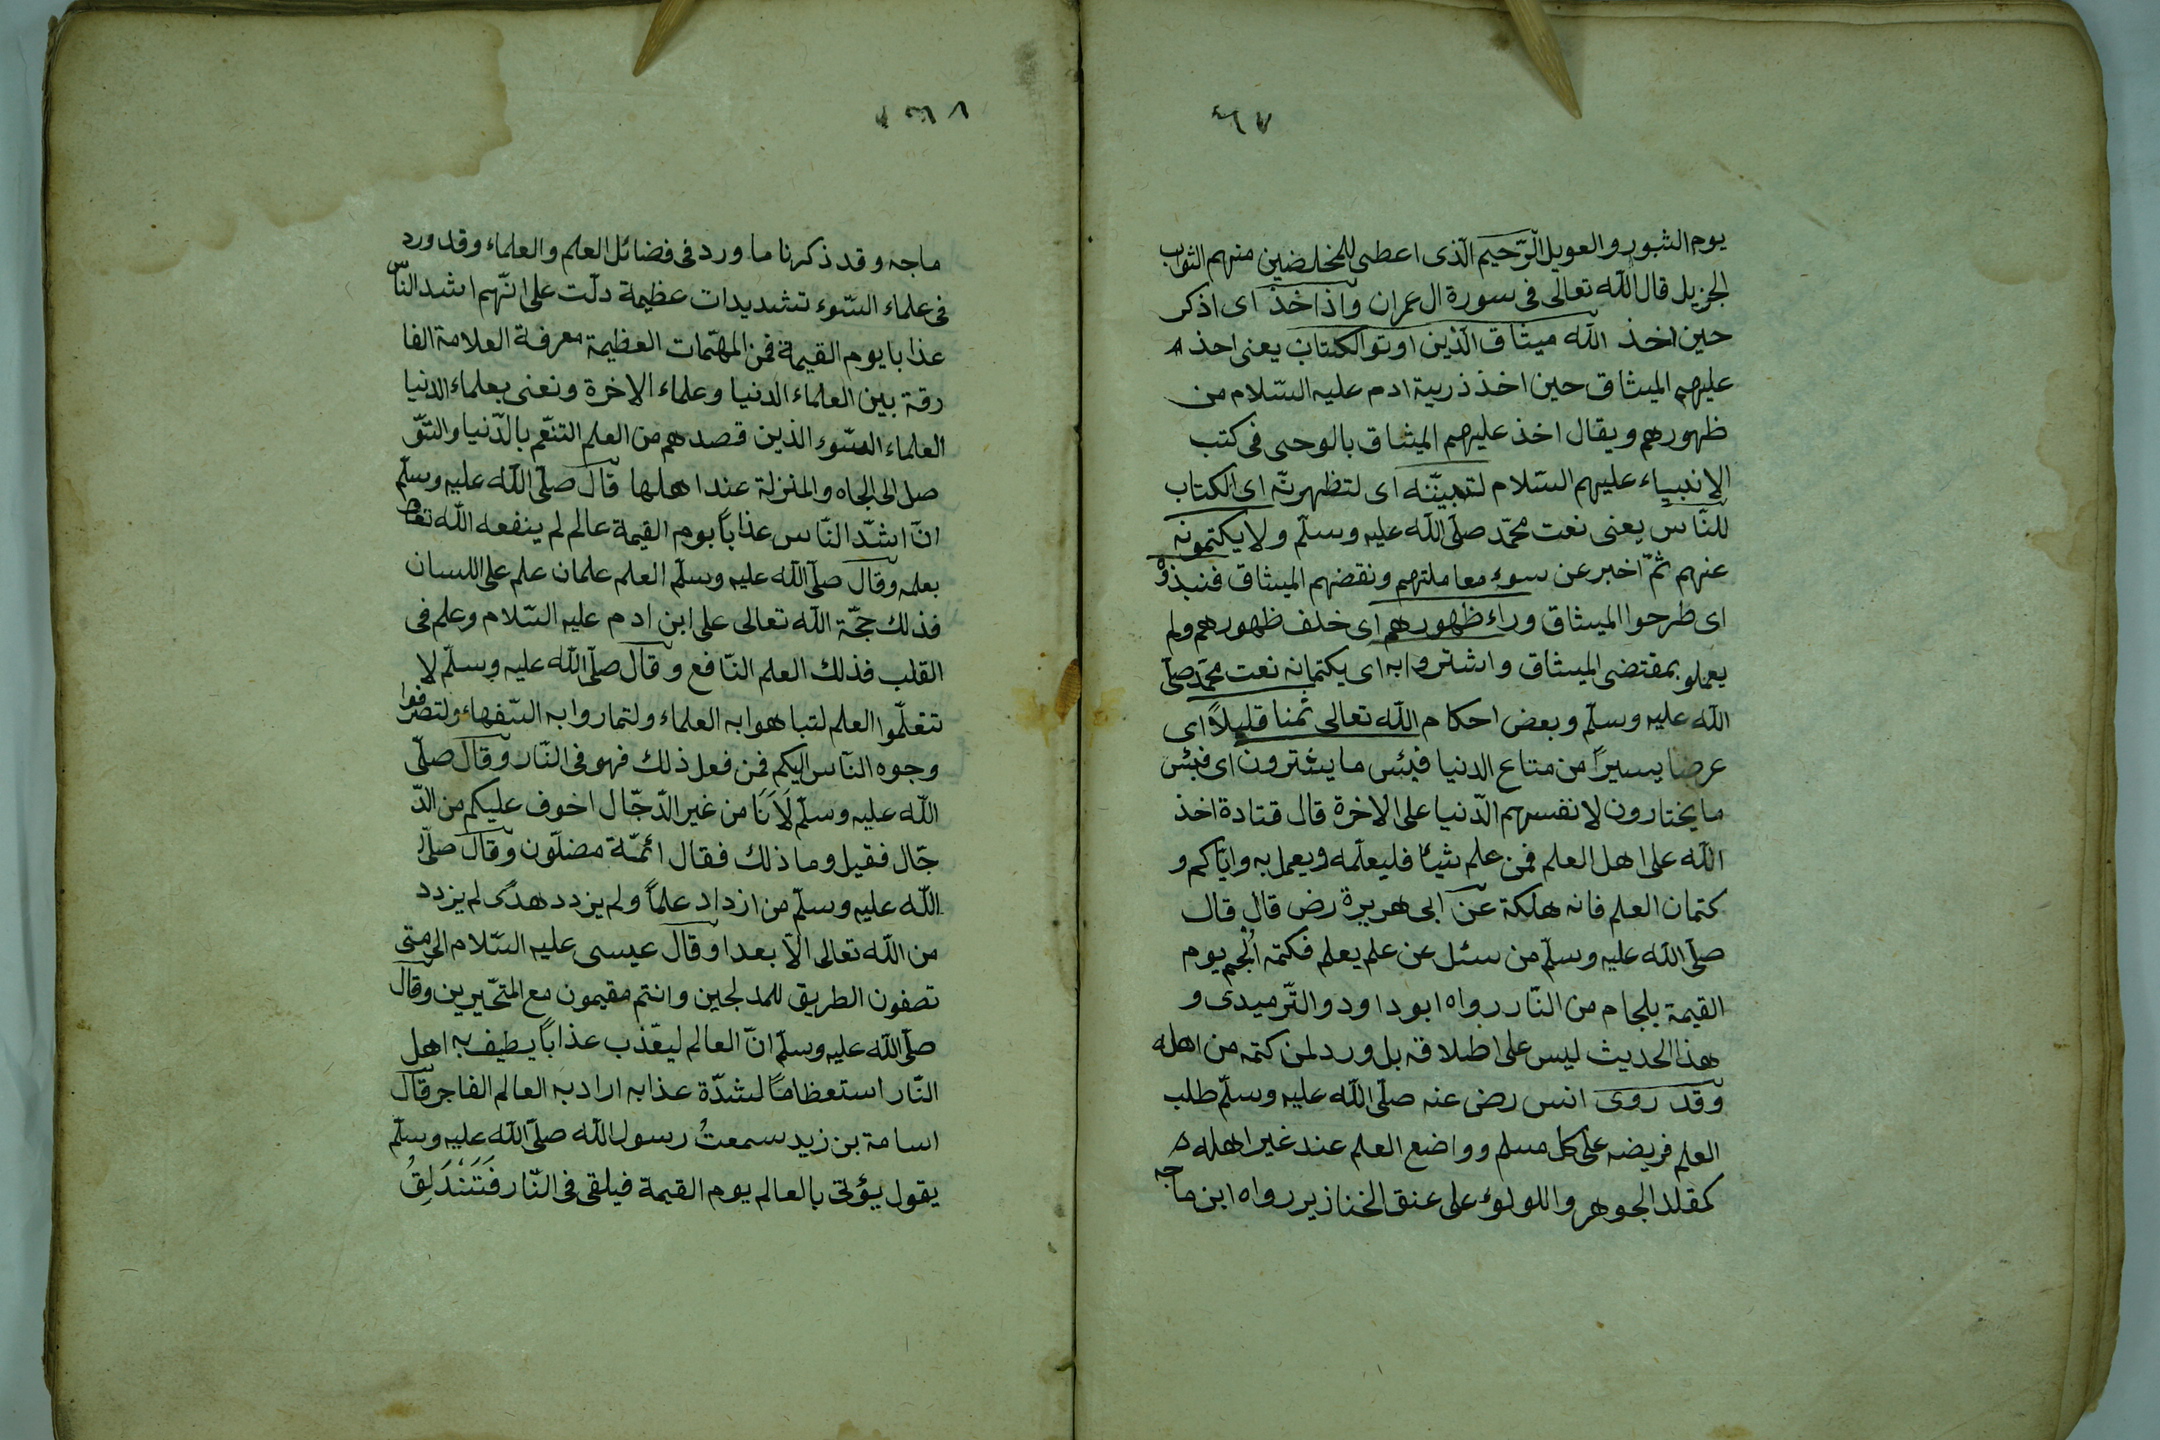 يوم الثبور والعويل الرّحيم الّذى اعطى للمخلصين منهم الثواب
الجزيل قال اللّه تعالى فى سورة ال عمران واذ اخذ اى اذكر
حين اخذ اللّه ميثاق الّذين اوتو الكتاب يعنى اخذ
عليهم الميثاق حين اخذ ذرية ادم عليه السّلام من
ظهورهم ويقال اخذ عليهم الميثاق بالوحى فى كتب
الانبياء عليهم السّلام لتبيّننه اى لتظهرنّه اى الكتاب
للنّاس يعنى نعت محمّد صلّى اللّه عليه وسلّم ولا يكتمونه
عنهم ثمّ اخبر عن سوء معاملتهم ونقضهم الميثاق فنبذوْ
اى طرحوا الميثاق وراء ظهورهم اى خلف ظهورهم ولم
يعملو بمقتضى الميثاق واشتروا به اى يكتمانه نعت محمّد صلّى
اللّه عليه وسلّم وبعض احكام اللّه تعالى ثمنا قليلاً اى
عرضا يسيراً من متاع الدنيا فبئس ما يشترون اى فبئس
ما يختارون لانفسهم الدّنيا على الاخرة قال قتادة اخذ
اللّه على اهل العلم فمن علم شيئا فليعلّمه ويعمل به واياكم و
كتمان العلم فانه هلكة عن ابى هريرة رض قال قال
صلّى اللّه عليه وسلّم من سئل عن علم يعلم فكتمه اُلجم يوم
القيمة بلجام من النّار رواه ابو داود والتّرميدى و
هذا الحديث ليس على اطلاقه بل ورد لمن كتمه من اهله
وقد روى انس رض عنه صلّى اللّه عليه وسلّم طلب
العلم فريضه على كل مسلم وواضع العلم عند غير اهله
كمقلد الجوهر واللولوء على عنق الخنازير رواه ابن ماجه
ماجه وقد ذكرنا ما ورد فى فضائل العلم والعلماء وقد ورد
فى علماء السّوء تشديدات عظيمة دلّت على انّهم اشد النّاس
عذابا يوم القيمة فمن المهمّات العظيمة معرفة العلامة الفا
رقة بين العلماء الدنيا وعلماء الاخرة ونعنى بعلماء الدنيا
العلماء السّوء الذين قصدهم من العلم التنعّم بالدّنيا والتّو
صل الى الجاه والمنزلة عند اهلها قال صلّى اللّه عليه وسلّم
انّ اشدّ النّاس عذاباً يوم القيمة عالم لم ينفعه اللّه تعالى
بعلمه وقال صلّى اللّه عليه وسلّم العلم علمان علم على اللسان
فذلك حجّة اللّه تعالى على ابن ادم عليه السّلام وعلم فى
القلب فذلك العلم النّافع وقال صلّى اللّه عليه وسلّم لا
تتعلّموا العلم لتباهوا به العلماء ولتماروا به السّفهاء ولتصرفوا
وجوه النّاس اليكم فمن فعل ذلك فهو فى النّار وقال صلّى
اللّه عليه وسلّم لَاَنَا من غير الدّجّال اخوف عليكم من الدّ
جّال فقيل وما ذلك فقال ائمّة مضلّون وقال صلّى
اللّه عليه وسلّم من ازداد علماً ولم يزدد هدًى لم يزدد
من اللّه تعالى الّا بعدا وقال عيسى عليه السّلام الى متى
تصفون الطريق للمدلجين وانتم مقيمون مع المتحّيرين وقال
صلّى اللّه عليه وسلّم انّ العالم ليعّذب عذاباً يطيف به اهل
النّار استعظاماً لشدّة عذابه اراد به العالم الفاجر وقال
اسامة بن زيد سمعتُ رسول اللّه صلّى اللّه عليه وسلّم
يقول يؤتى بالعالم يوم القيمة فيلقى فى النّار فَتَنْدَلِقُ